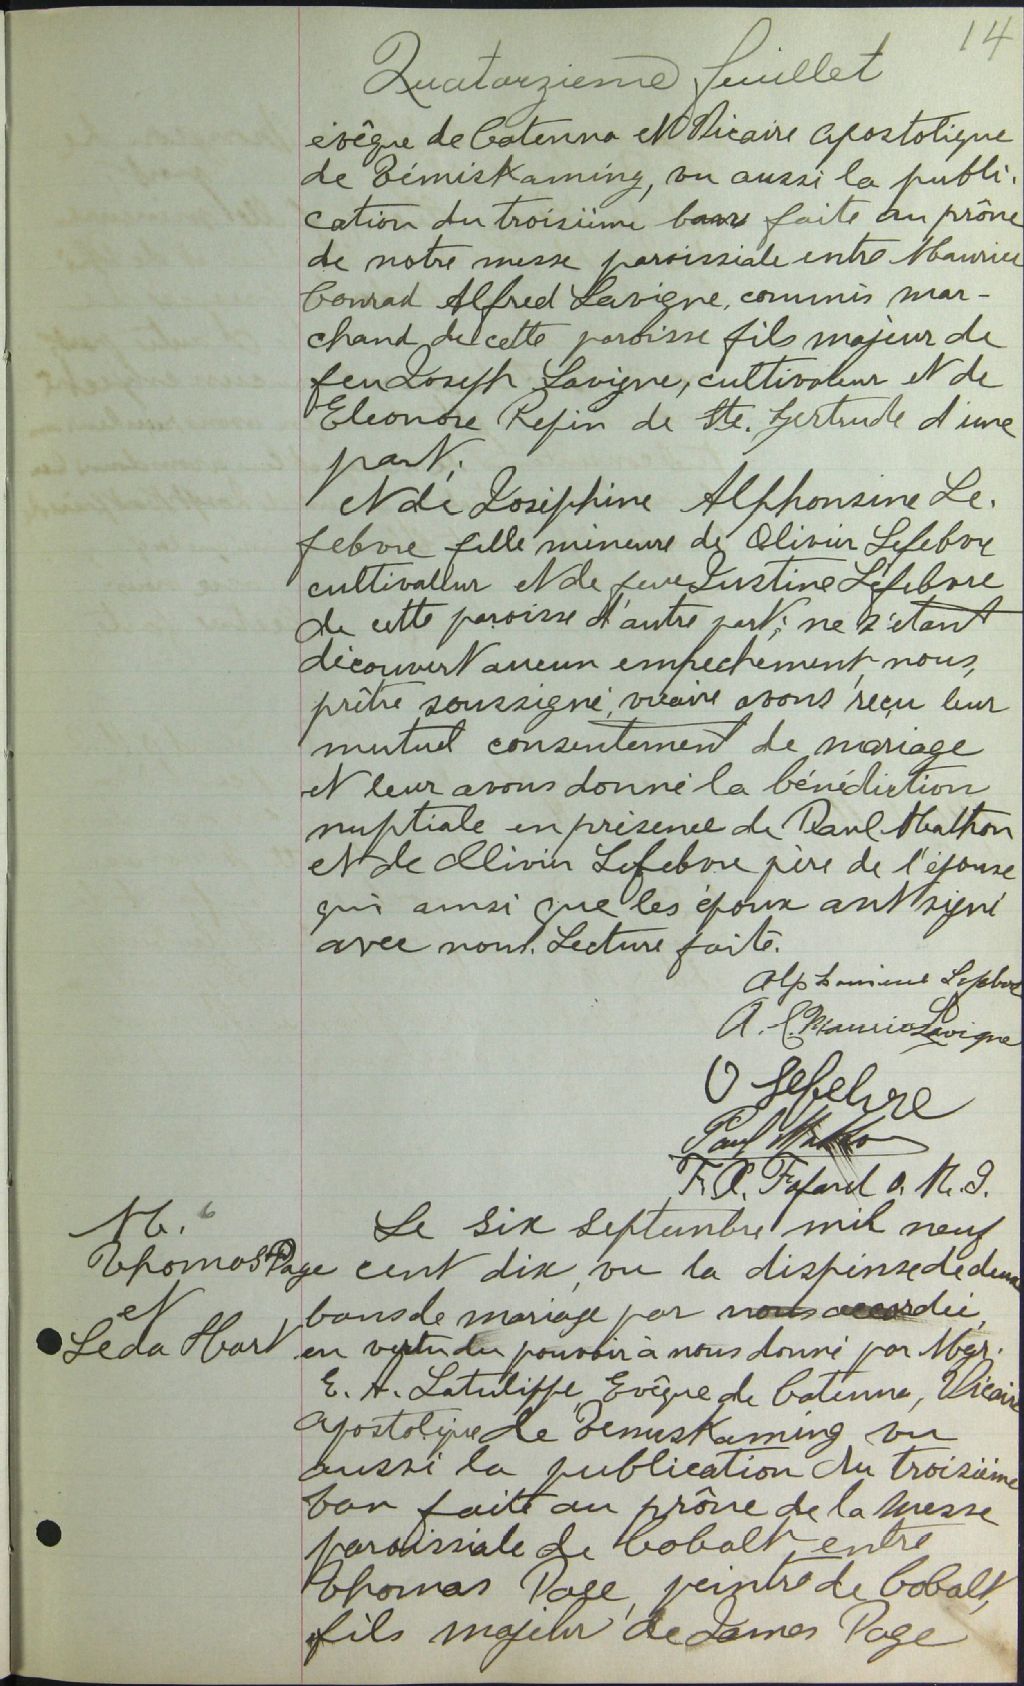 14
Quatorzieme feuillet
évêque de Catenna et Vicaire Apostolique
de Témiskaming, vu aussi la publi-
cation du troisième bans faite au prône
de notre messe paroissiale entre Maurice
Conrad Alfred Lavigne, commis mar-
chand de cette paroisse fils majeur de
feu Joseph Lavigne, cultivateur et de
Eleonore Pepin de Ste. Gertrude d'une
part;
et de Joséphine Alphonsine Le-
febvre fille mineure de Olivier Lefebvre
cultivateur et de feue Justine Lefebvre
de cette paroisse d'autre part; ne s'etant
découvert aucun empechement, nous,
prêtre soussigné, vicaire avons reçu leur
mutuel consentement de mariage
et leur avons donné la bénédiction
nuptiale en présence de Paul Mathon
et de Olivier Lefebvre père de l'épouse
qui ainsi que les époux ont signé
avec nous. Lecture faite.
Alphonsine Lefebvre
A. C. Maurice Lavigne
O Lefebvre
Paul
F. X. Fafard O. M. I.
M. 6
Thomas Page
et
Leda Hart
Le six septembre mil neuf
cent dix, vu la dispense de deux
bans de mariage par nous accordée,
en vertu du pouvoir à nous donné par Mgr.
E. A. Latulippe, Evêque de Catenna, Vicaire
Apostolique de Temiskaming vu
aussi la publication du troisième
ban faite au prône de la messe
paroissiale de Cobalt entre
Thomas Page, peintre de Cobalt,
fils majeur de James Page